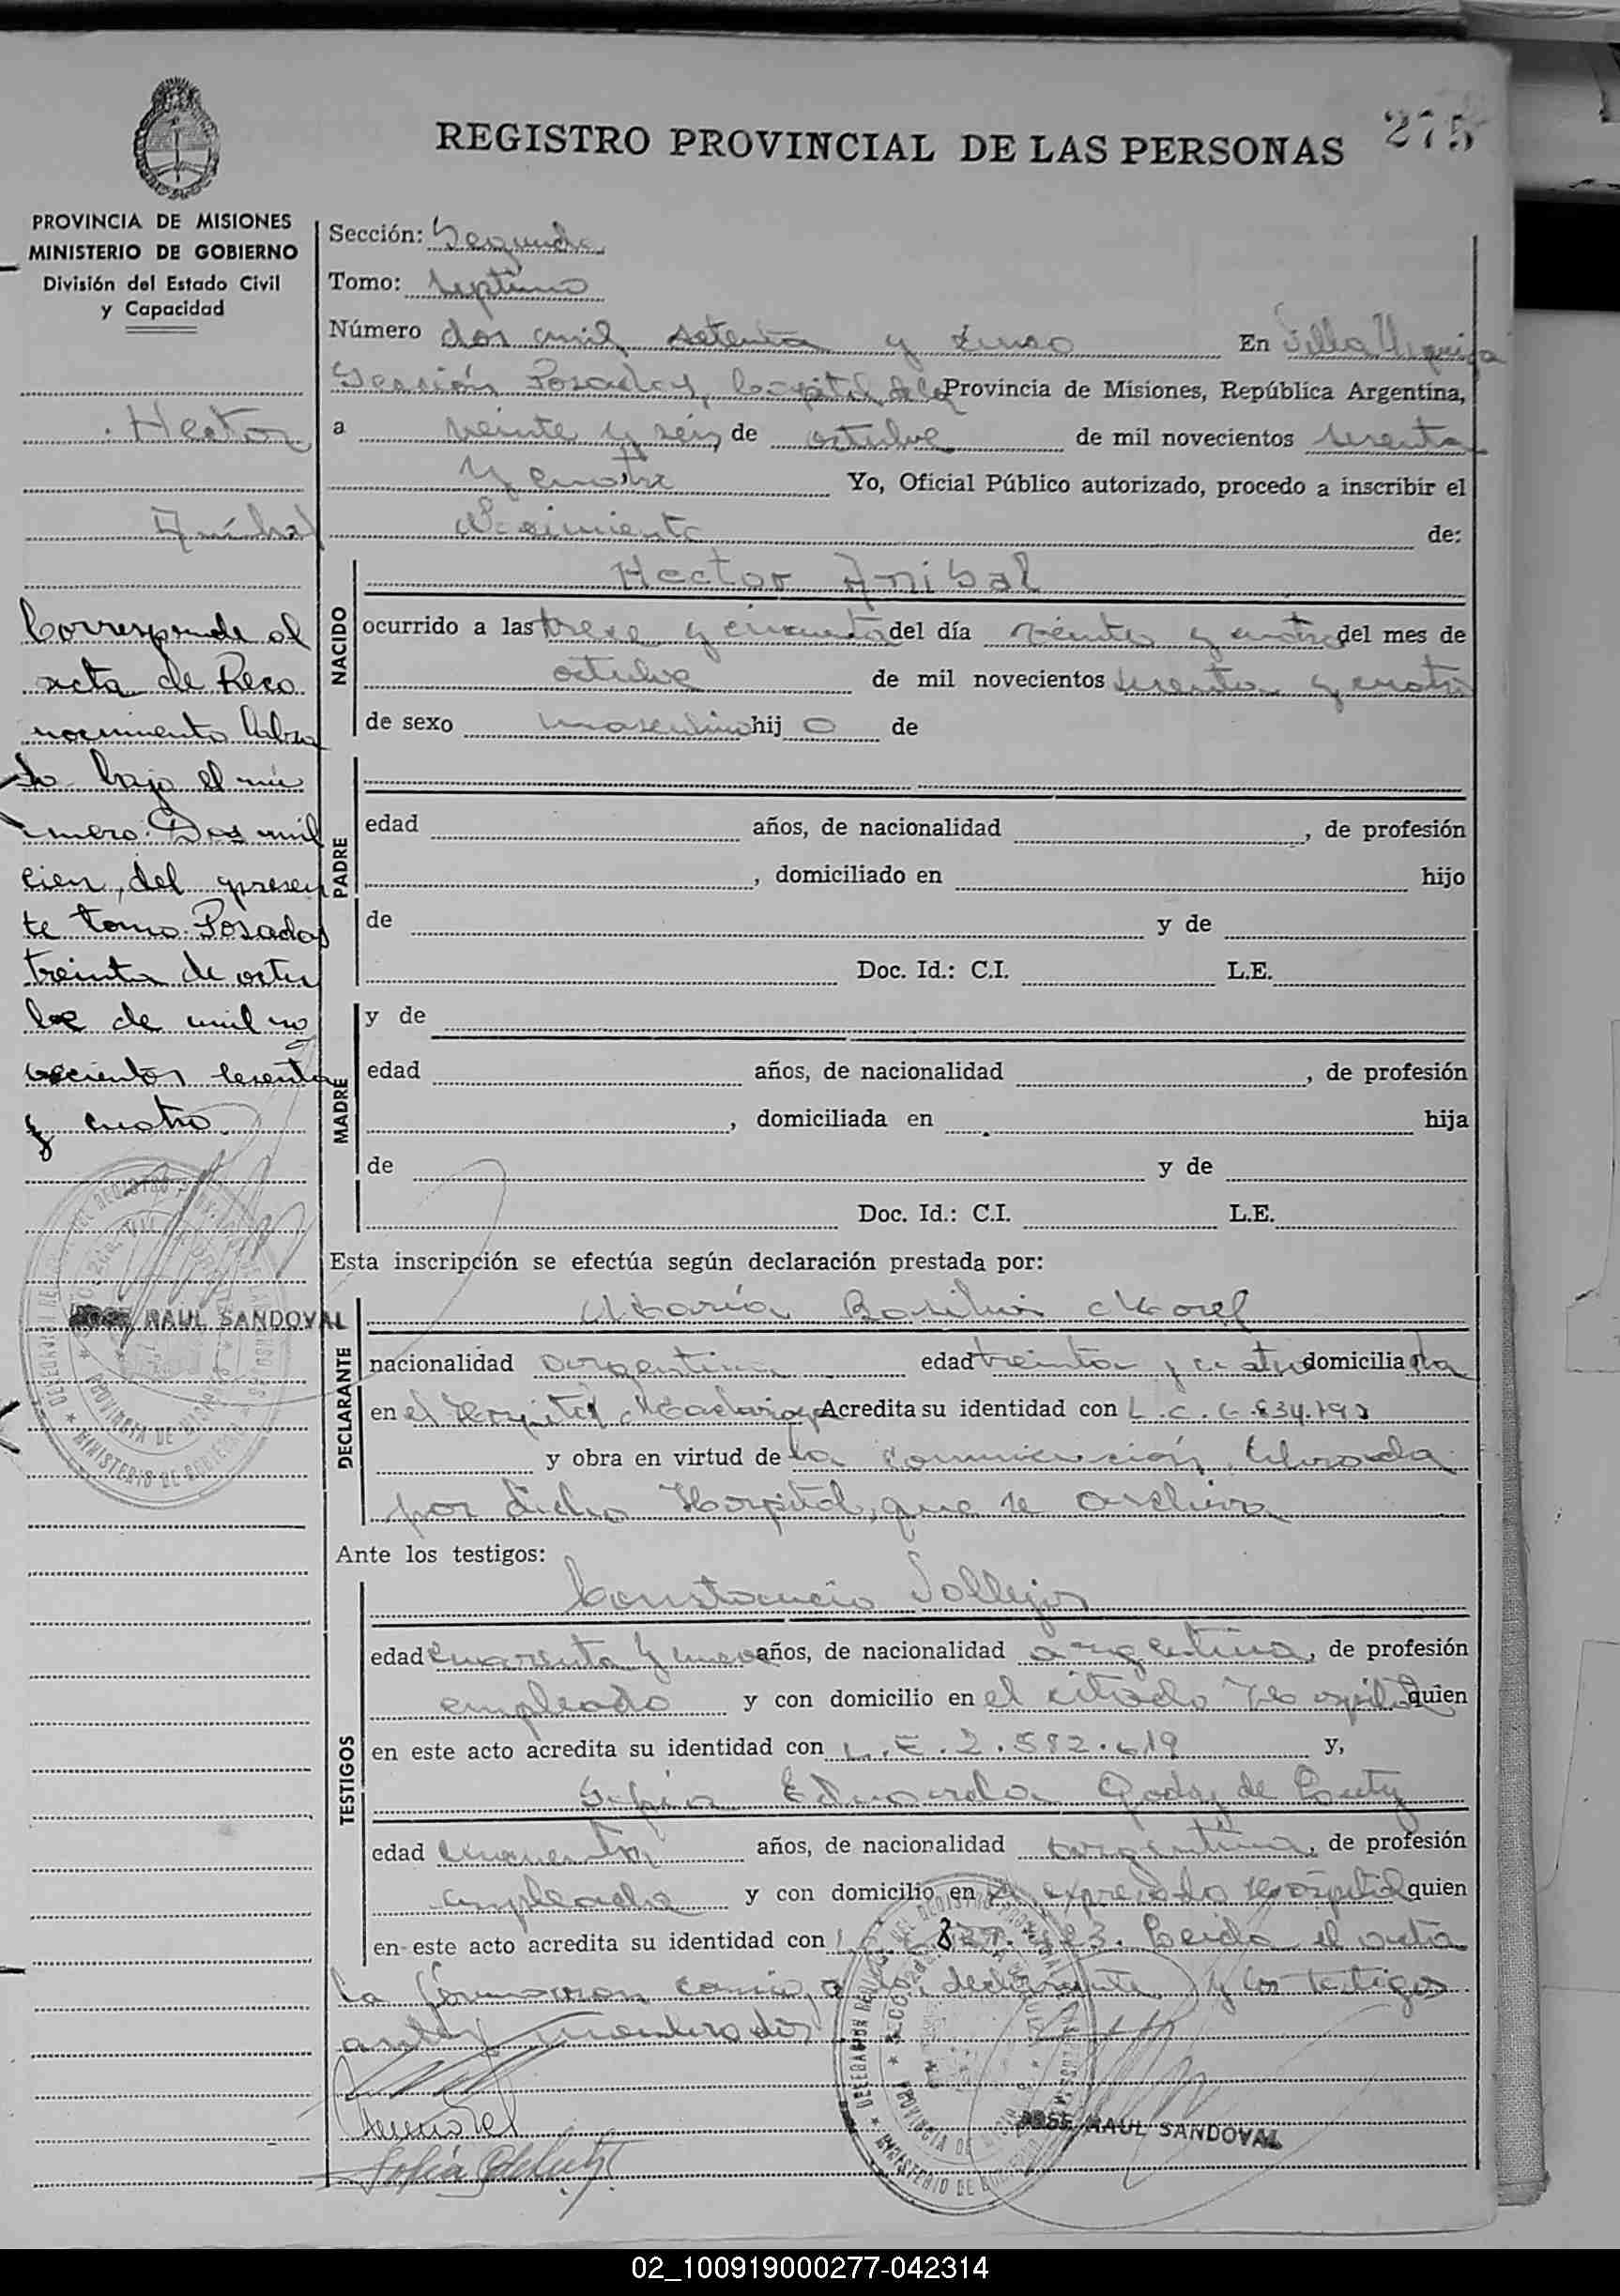 275
REGISTRO PROVINCIAL DE LAS PERSONAS
PROVINCIA DE MISIONES
MINISTERIO DE GOBIERNO
División del Estado Civil
y Capacidad
Hector
Aníbal
Corresponde al
acta de Reco
nocimiento labra
do bajo el nú
mero Dos mil
cien, del presen
te tomo. Posadas
treinta de octu
bre de mil no
vecientos sesenta
y cuatro.
JOSE RAUL SANDOVAL
Sección: Segunda
Tomo: septimo
Número dos mil setenta y En Villa Urquiza
Sección Posadas, Capital de la Provincia de Misiones, República Argentina,
a veinte y seis de octubre de mil novecientos sesenta
y cuatro Yo, Oficial Público autorizado, procedo a inscribir el
Nacimiento de:
NACIDO
Hector Anibal
ocurrido a las trece y cincuenta del día veinte y cuatro del mes de
octubre de mil novecientos sesenta y cuatro
de sexo masculino hij o de
PADRE
edad años, de nacionalidad , de profesión
, domiciliado en hijo
de y de
Doc. Id.: C.I. L.E.
MADRE
y de
edad años, de nacionalidad , de profesión
, domiciliada en hija
de y de
Doc. Id.: C.I. L.E.
Esta inscripción se efectúa según declaración prestada por:
DECLARANTE
María Morel
nacionalidad argentina edad treinta y cuatro domicilia da
en el Hospital Madariaga Acredita su identidad con L.C. 6.834.193
y obra en virtud de la comunicación librada
por dicho Hospital, que se archiva
Ante los testigos:
TESTIGOS
Constancio Vallejos
edad cuarenta y nueve años, de nacionalidad argentina, de profesión
empleado y con domicilio en el citado Hospital quien
en este acto acredita su identidad con L.E. 2.582.619 y,
Sofía Eduarda Godoy de
edad cincuenta años, de nacionalidad argentina, de profesión
empleada y con domicilio en el expresado Hospital quien
en este acto acredita su identidad con Leida el acta
la firmaron conmigo, declarante y los testigos
antes nombrados
Sofía
JOSE RAUL SANDOVAL
02_100919000277-042314